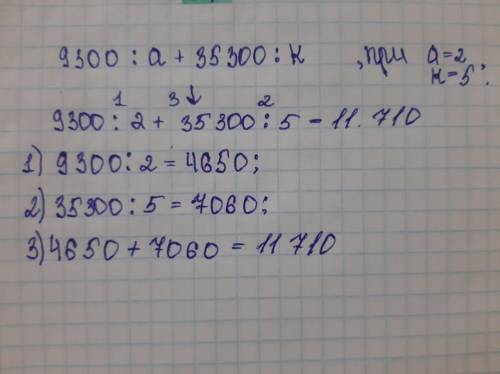 9300 : а + 35300 : к , при а=2
к=5 :
1 3↓ 2
9300 : 2 + 35300 : 5 - 11.710
1) 9300 : 2 = 4650;
2) 35300 : 5 = 7060;
3) 4650 + 7060 = 11 710